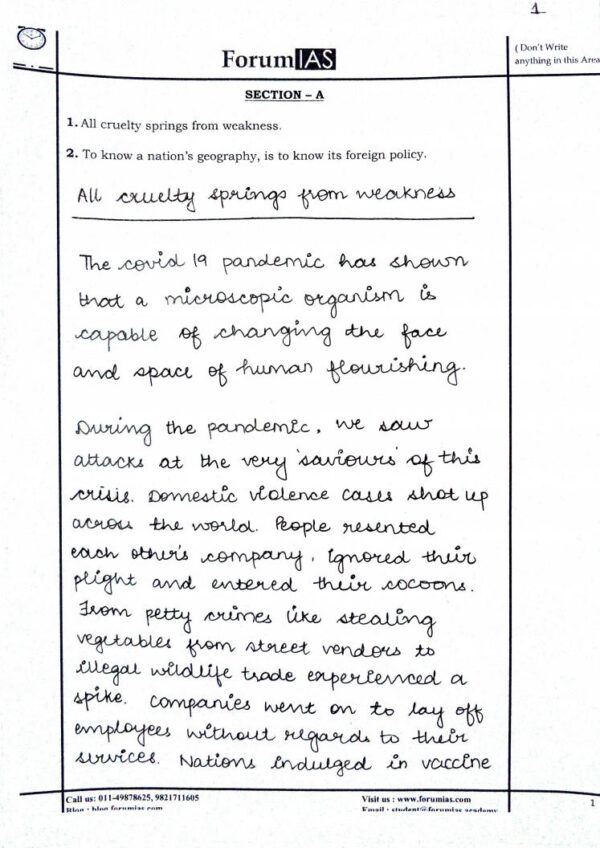 1
ForumIAS
( Don't Write
anything in this Area
SECTION – A
1. All cruelty springs from weakness.
2. To know a nation's geography, is to know its foreign policy.
All cruelty springs from weakness
The covid 19 pandemic has shown
that a microscopic organism is
capable of changing the face
and space of human flourishing.
During the pandemic, we saw
attacks at the very 'saviours' of this
crisis. Domestic violence cases shot up
across the world. People resented
each other's company, ignored their
plight and entered their cocoons.
From petty crimes like stealing
vegetables from street vendors to
illegal wildlife trade experienced a
spike. Companies went on to lay off
employees without regards to their
services. Nations indulged in vaccine
Call us: 011-49878625, 9821711605
Visit us : www.forumias.com
1
Blog : blog.forumias.com
Email : student@forumias.academy